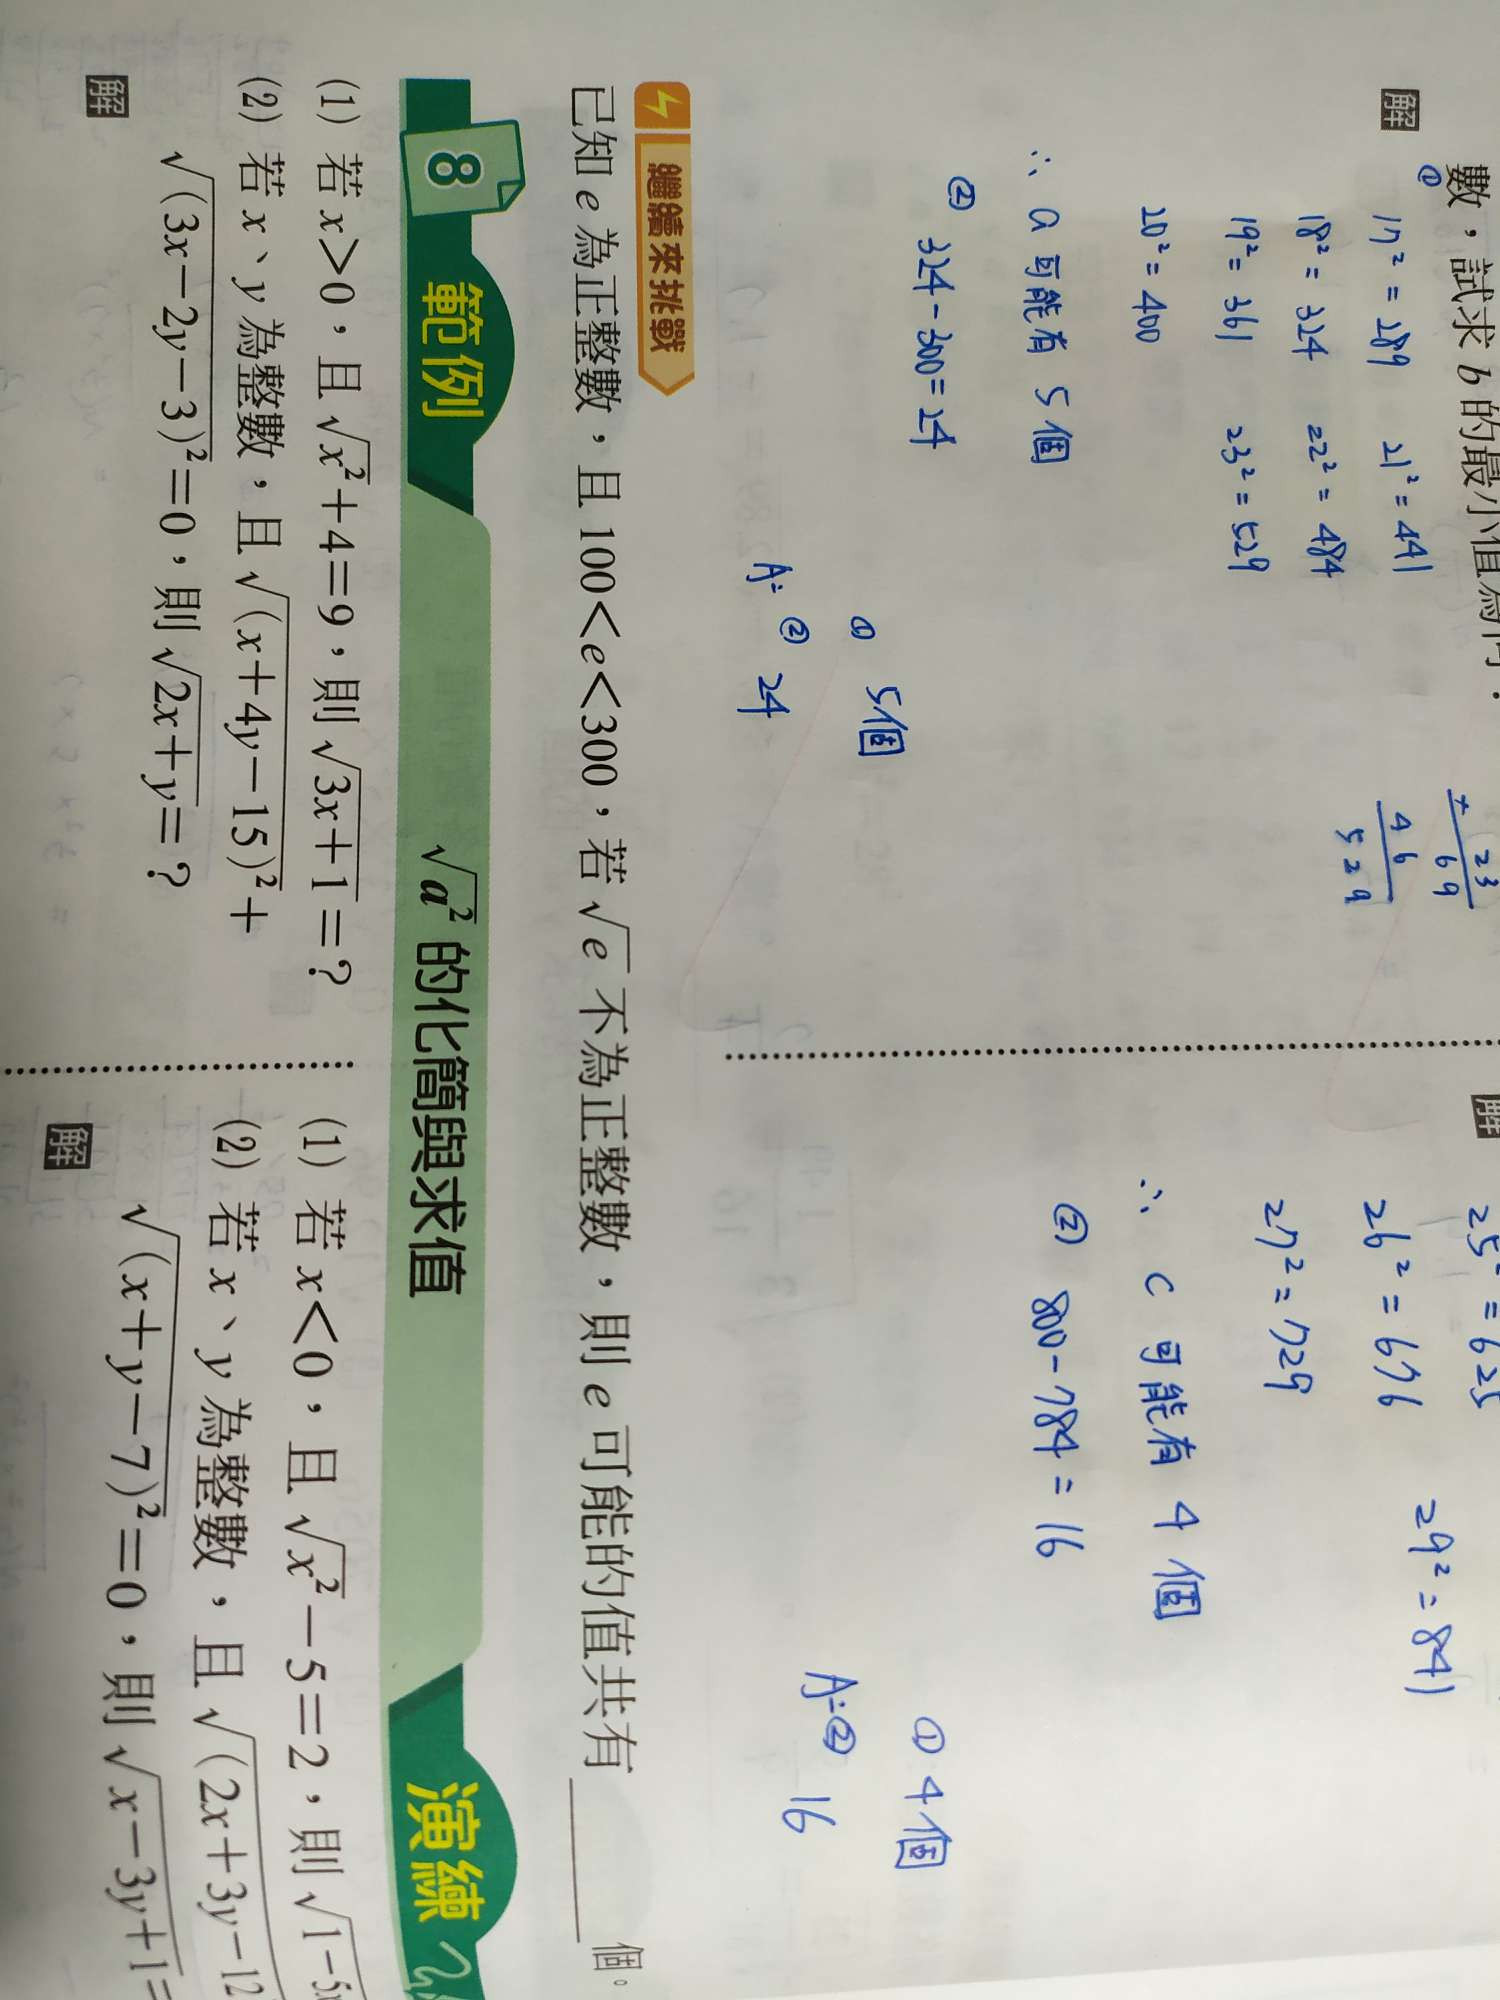 數，試求 b 的最小值為何？
解
① 17² = 289 21² = 441
18² = 324 22² = 484
19² = 361 23² = 529
20² = 400
∴ a 可能有 5 個
② 324 - 300 = 24
① 5個
A: ② 24
23
69
46
529
解
25² = 625
26² = 676 29² = 841
27² = 729
∴ c 可能有 4 個
② 800 - 784 = 16
① 4個
A: ② 16
繼續來挑戰
已知 e 為正整數，且 100<e<300，若 √e 不為正整數，則 e 可能的值共有______個。
8 範例 √a² 的化簡與求值 演練
(1) 若 x>0，且 √x²+4=9，則 √3x+1=?
(2) 若 x、y 為整數，且 √(x+4y-15)²+
√(3x-2y-3)²=0，則 √2x+y=?
解
(1) 若 x<0，且 √x²-5=2，則 √1-5x
(2) 若 x、y 為整數，且 √(2x+3y-12
√(x+y-7)²=0，則 √x-3y+1=
解